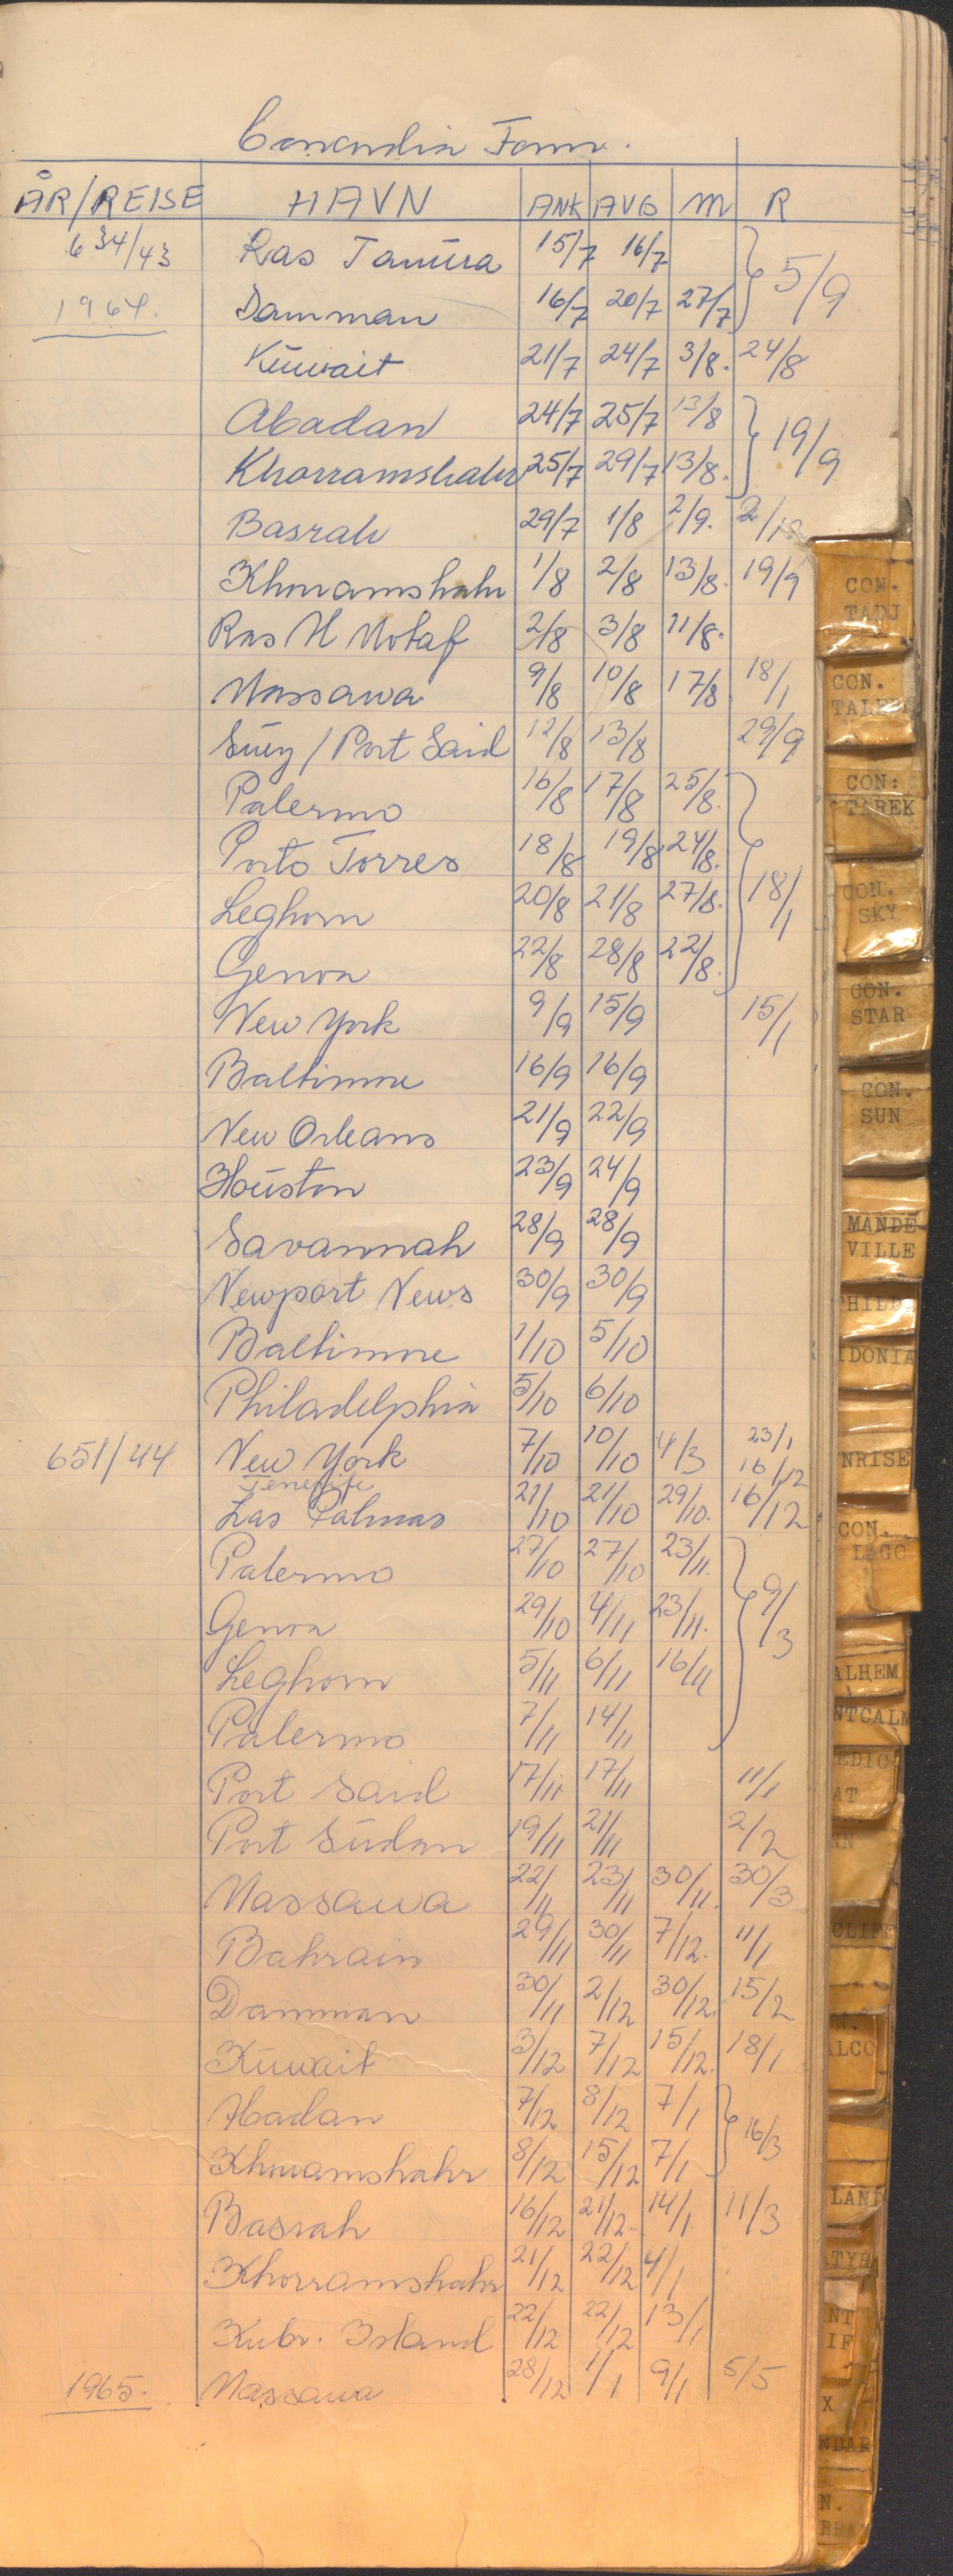 Concordia Fonn.
ÅR/REISE HAVN ANK AVG M R
634/43 Ras Tanura 15/7 16/7
5/9
1964. Damman 16/7 20/7 27/7
Kuwait 21/7 24/7 3/8. 24/8
Abadan 24/7 25/7 13/8
19/9
Khorramshahr 25/7 29/7 13/8.
Basrah 29/7 1/8 2/9. 2/12
Khorramshahr 1/8 2/8 13/8. 19/9
Ras Al Motaf 2/8 3/8 11/8.
Massawa 9/8 10/8 17/8 18/1
Suez / Port Said 12/8 13/8 29/9
Palermo 16/8 17/8 25/8.
Porto Torres 18/8 19/8 24/8.
18/1
Leghorn 20/8 21/8 27/8.
Genoa 22/8 28/8 22/8.
New York 9/9 15/9 15/1
Baltimore 16/9 16/9
New Orleans 21/9 22/9
Houston 23/9 24/9
Savannah 28/9 28/9
Newport News 30/9 30/9
Baltimore 1/10 5/10
Philadelphia 5/10 6/10
651/44 New York 7/10 10/10 4/3 23/1 16/12
Tenerife
Las Palmas 21/10 21/10 29/10. 16/12
Palermo 27/10 27/10 23/11.
9/3
Genoa 29/10 4/11 23/11.
Leghorn 5/11 6/11 16/11
Palermo 7/11 14/11
Port Said 17/11 17/11 11/1
Port Sudan 19/11 21/11 2/2
Massawa 22/11 23/11 30/11. 30/3
Bahrain 29/11 30/11 7/12. 11/1
Damman 30/11 2/12 30/12. 15/2
Kuwait 3/12 7/12 15/12. 18/1
Abadan 7/12 8/12 7/1
16/3
Khorramshahr 8/12 15/12 7/1
Basrah 16/12 21/12. 14/1 11/3
Khorramshahr 21/12 22/12 4/1
Kubr. Island 22/12 22/12 13/1
1965. Massawa 28/12 1/1 9/1 5/5
CON.
TADJ
CON.
TALEB
CON:
TAREK
CON.
SKY
CON.
STAR
CON.
SUN
MANDE-
VILLE
IDONIA
NRISE
CON.
LAGO
ALHEM
NTCALM
EDIC
AT
NN
CLIFF
N.
ALCO
LAND
ATYR
NT
IF
X
NDAR
N.